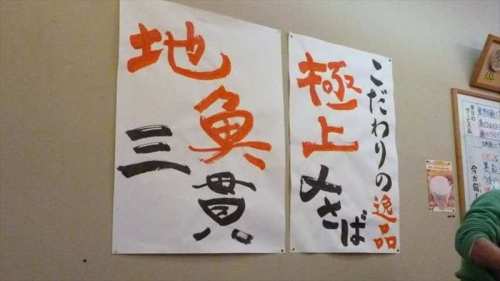 こだわりの逸品
極上〆さば
地魚
三貫